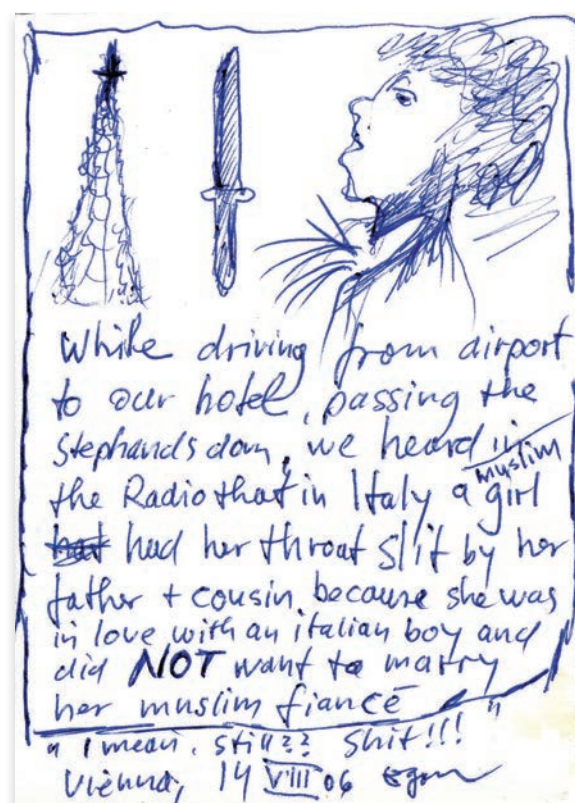 While driving from airport
to our hotel, passing the
Stephansdom, we heard in
the Radio that in Italy a muslim girl
had her throat slit by her
father + cousin, because she was
in love with an italian boy and
did NOT want to marry
her muslim fiancé
" I mean, still?? Shit!!! "
Vienna, 14 VIII 06